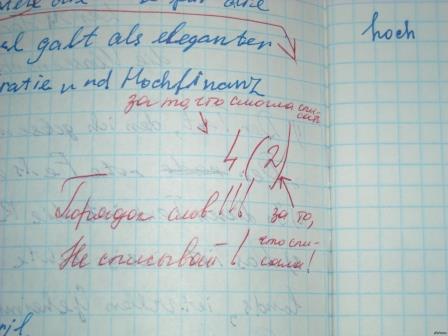 für die
al galt als eleganter
hoch
ratie und Hochfinanz
за то, что смогла спи-
сать
4 (2)
Порядок слов!!!
за то,
что спи-
сала!
Не списывай!